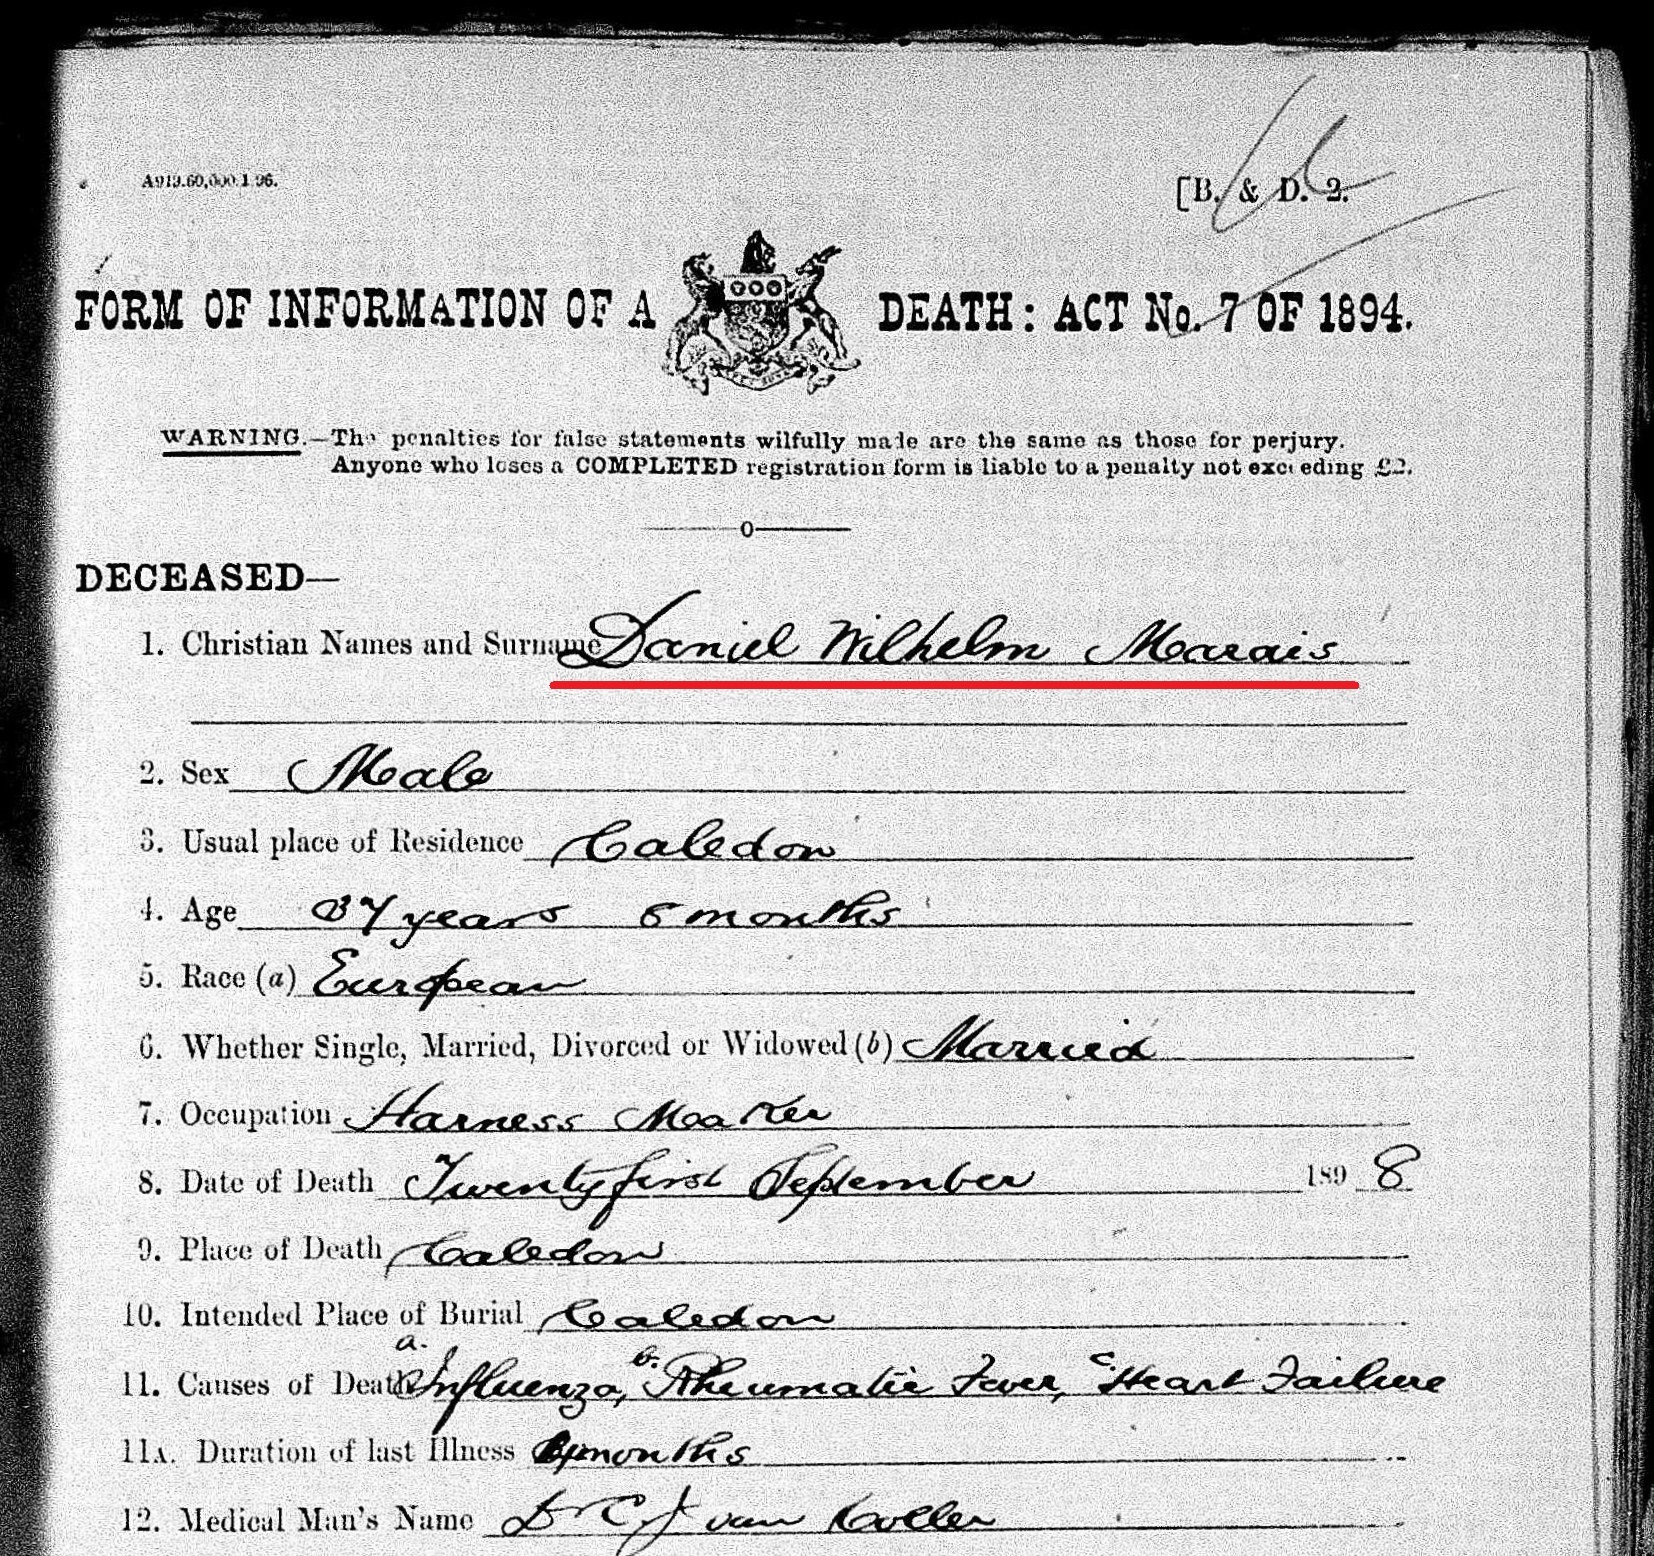 A913.60,000.1.96.
[B. & D. 2.
FORM OF INFORMATION OF A DEATH: ACT No. 7 OF 1894.
WARNING.—The penalties for false statements wilfully made are the same as those for perjury.
Anyone who loses a COMPLETED registration form is liable to a penalty not exceeding £2.
DECEASED—
1. Christian Names and Surname Daniel Wilhelm Marais
2. Sex Male
3. Usual place of Residence Caledon
4. Age 37 years 8 months
5. Race (a) European
6. Whether Single, Married, Divorced or Widowed (b) Married
7. Occupation Harness Maaker
8. Date of Death Twenty first September 1898
9. Place of Death Caledon
10. Intended Place of Burial Caledon
11. Causes of Death a. Influenza, b. Rheumatic Fever, c. Heart Failure
11A. Duration of last Illness months
12. Medical Man's Name Dr C J van